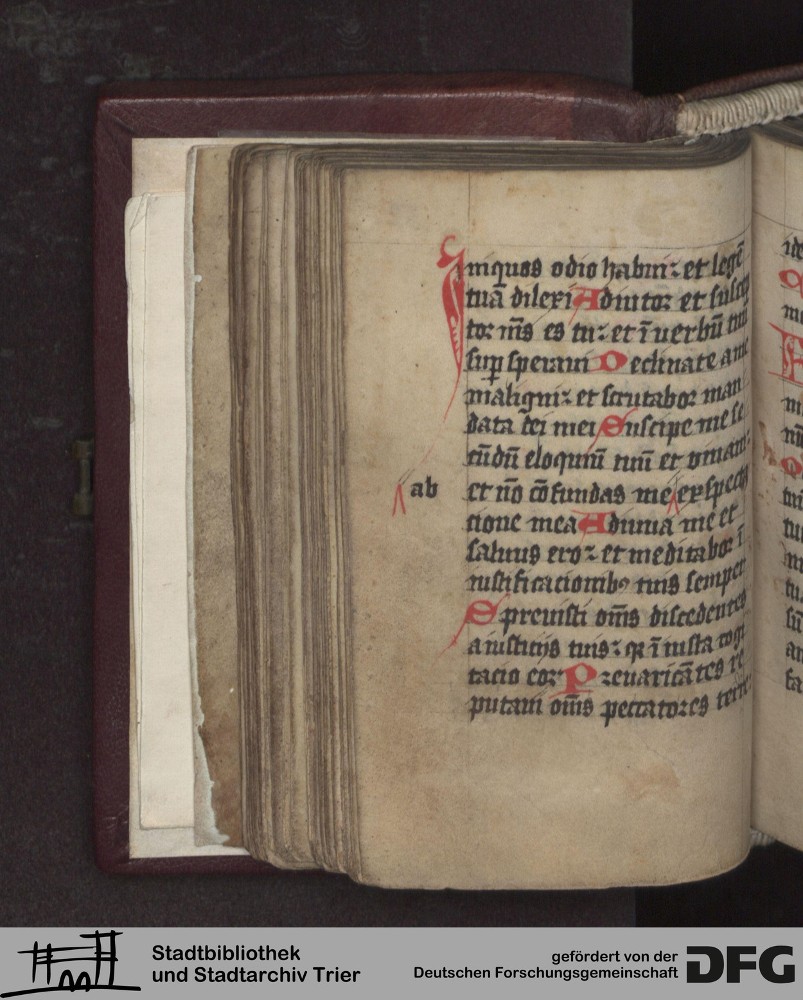 Iniquos odio habui: et legē
tuā dilexi Adiutor et suscep
tor m̄s es tu: et ī uerbū tuū
sup̱ speraui Declinate a me
maligni: et scrutabor man
data dei mei Suscipe me se
cūdū eloquiū tuū et uiuam:
ab
et nō cōfundas me exspecta
tione mea Adiuua me et
saluus ero: et meditabor ī
iustificacionibꝰ tuis semper
Spreuisti om̄s discedentes
a iusticijs tuis: qꝛ īiusta cogi
tacio eoꝝ Preuaricātes re
putaui om̄s peccatores terre
Stadtbibliothek
und Stadtarchiv Trier
gefördert von der
Deutschen Forschungsgemeinschaft
DFG